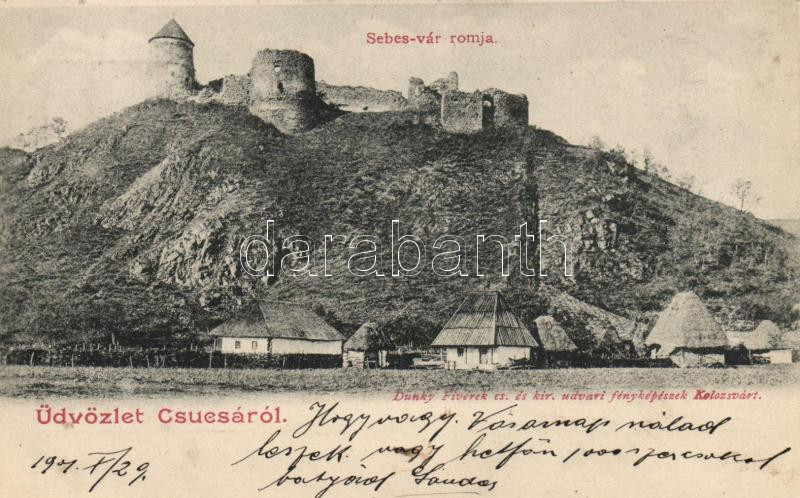 Sebes-vár romja.
darabanth
Dunky Fivérek cs. és kir. udvari fényképészek Kolozsvárt.
Üdvözlet Csucsáról!
Hogy vagy. Vasárnap nálad
leszek vagy hétfőn 1000 szer csókol
bátyád Sandor
1901. V/29.